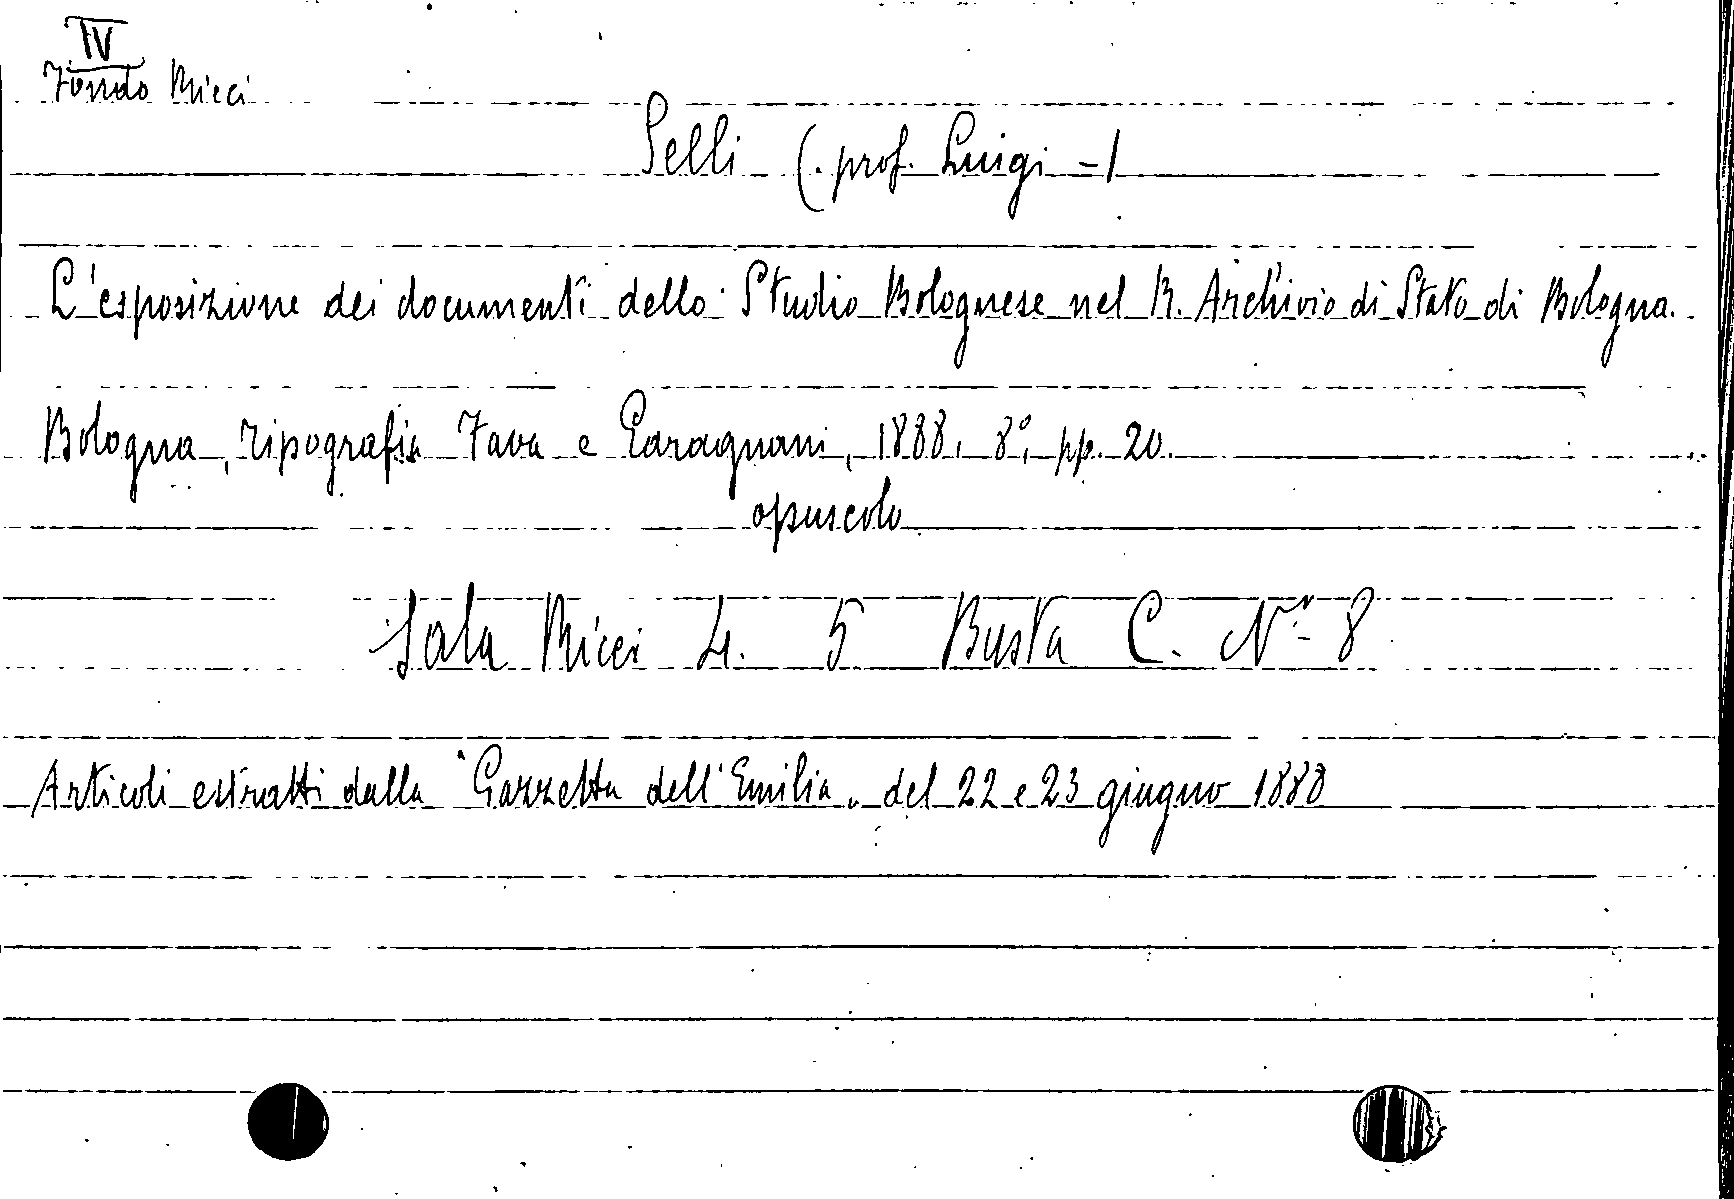 IV
Fondo Ricci
Selli (prof. Luigi =)
L'esposizione dei documenti dello Studio Bolognese nel R. Archivio di Stato di Bologna.
Bologna, Tipografia Fava e Garagnani, 1888. 8°, pp. 20.
opuscolo
Sala Ricci 4. 5 Busta C. N° 8
Articoli estratti dalla "Gazzetta dell'Emilia" del 22 e 23 giugno 1888